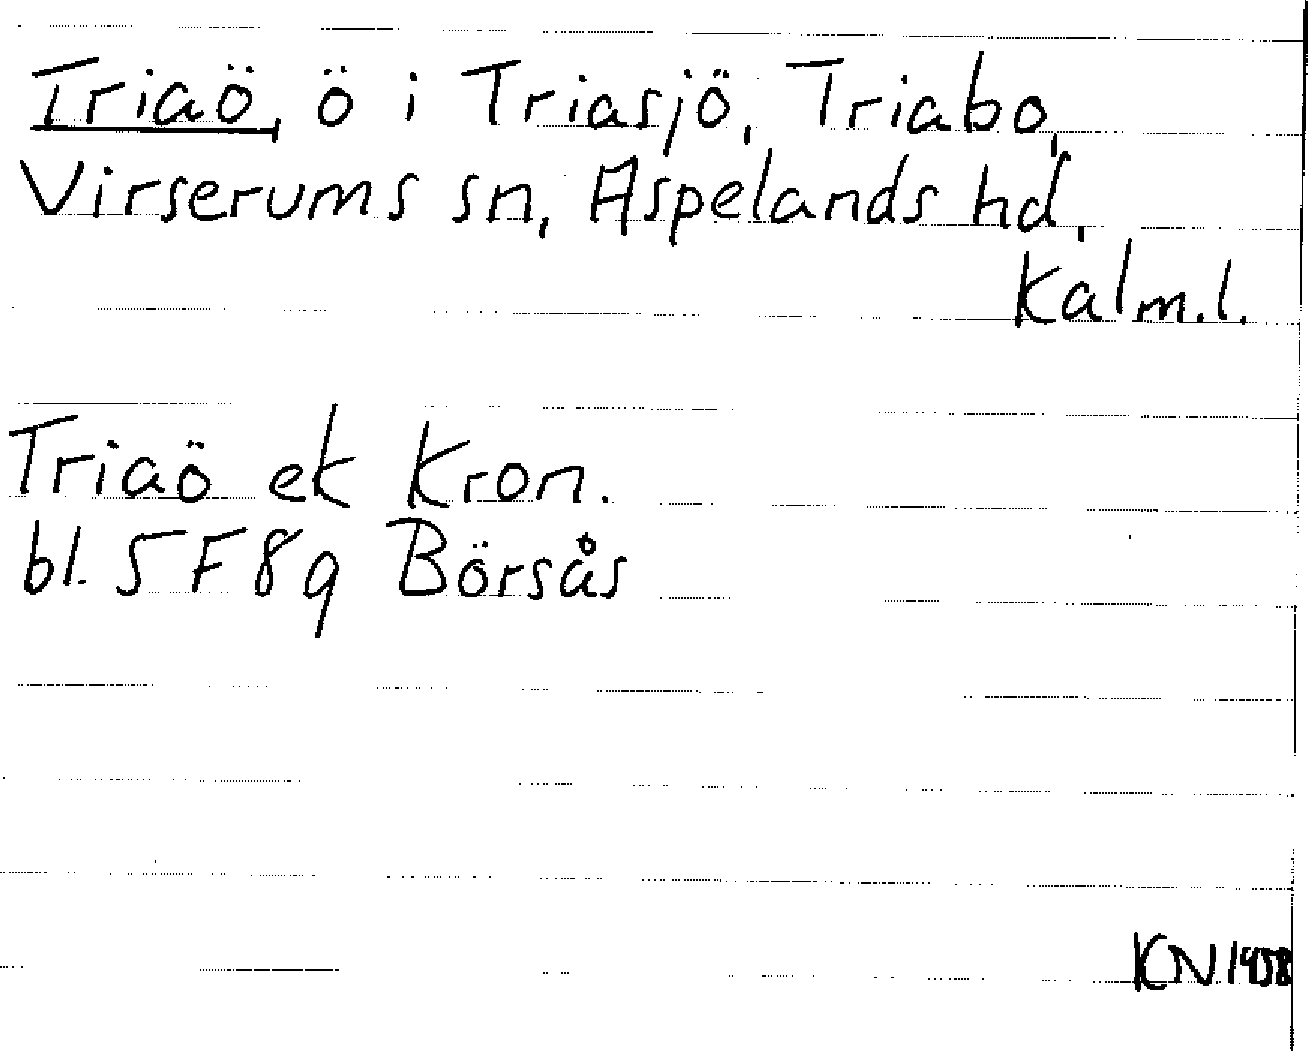 Triaö, ö i Triasjö, Triabo,
Virserums sn, Aspelands hd,
Kalm.l.
Triaö ek Kron.
bl. 5F8g Börsås
KN 1958